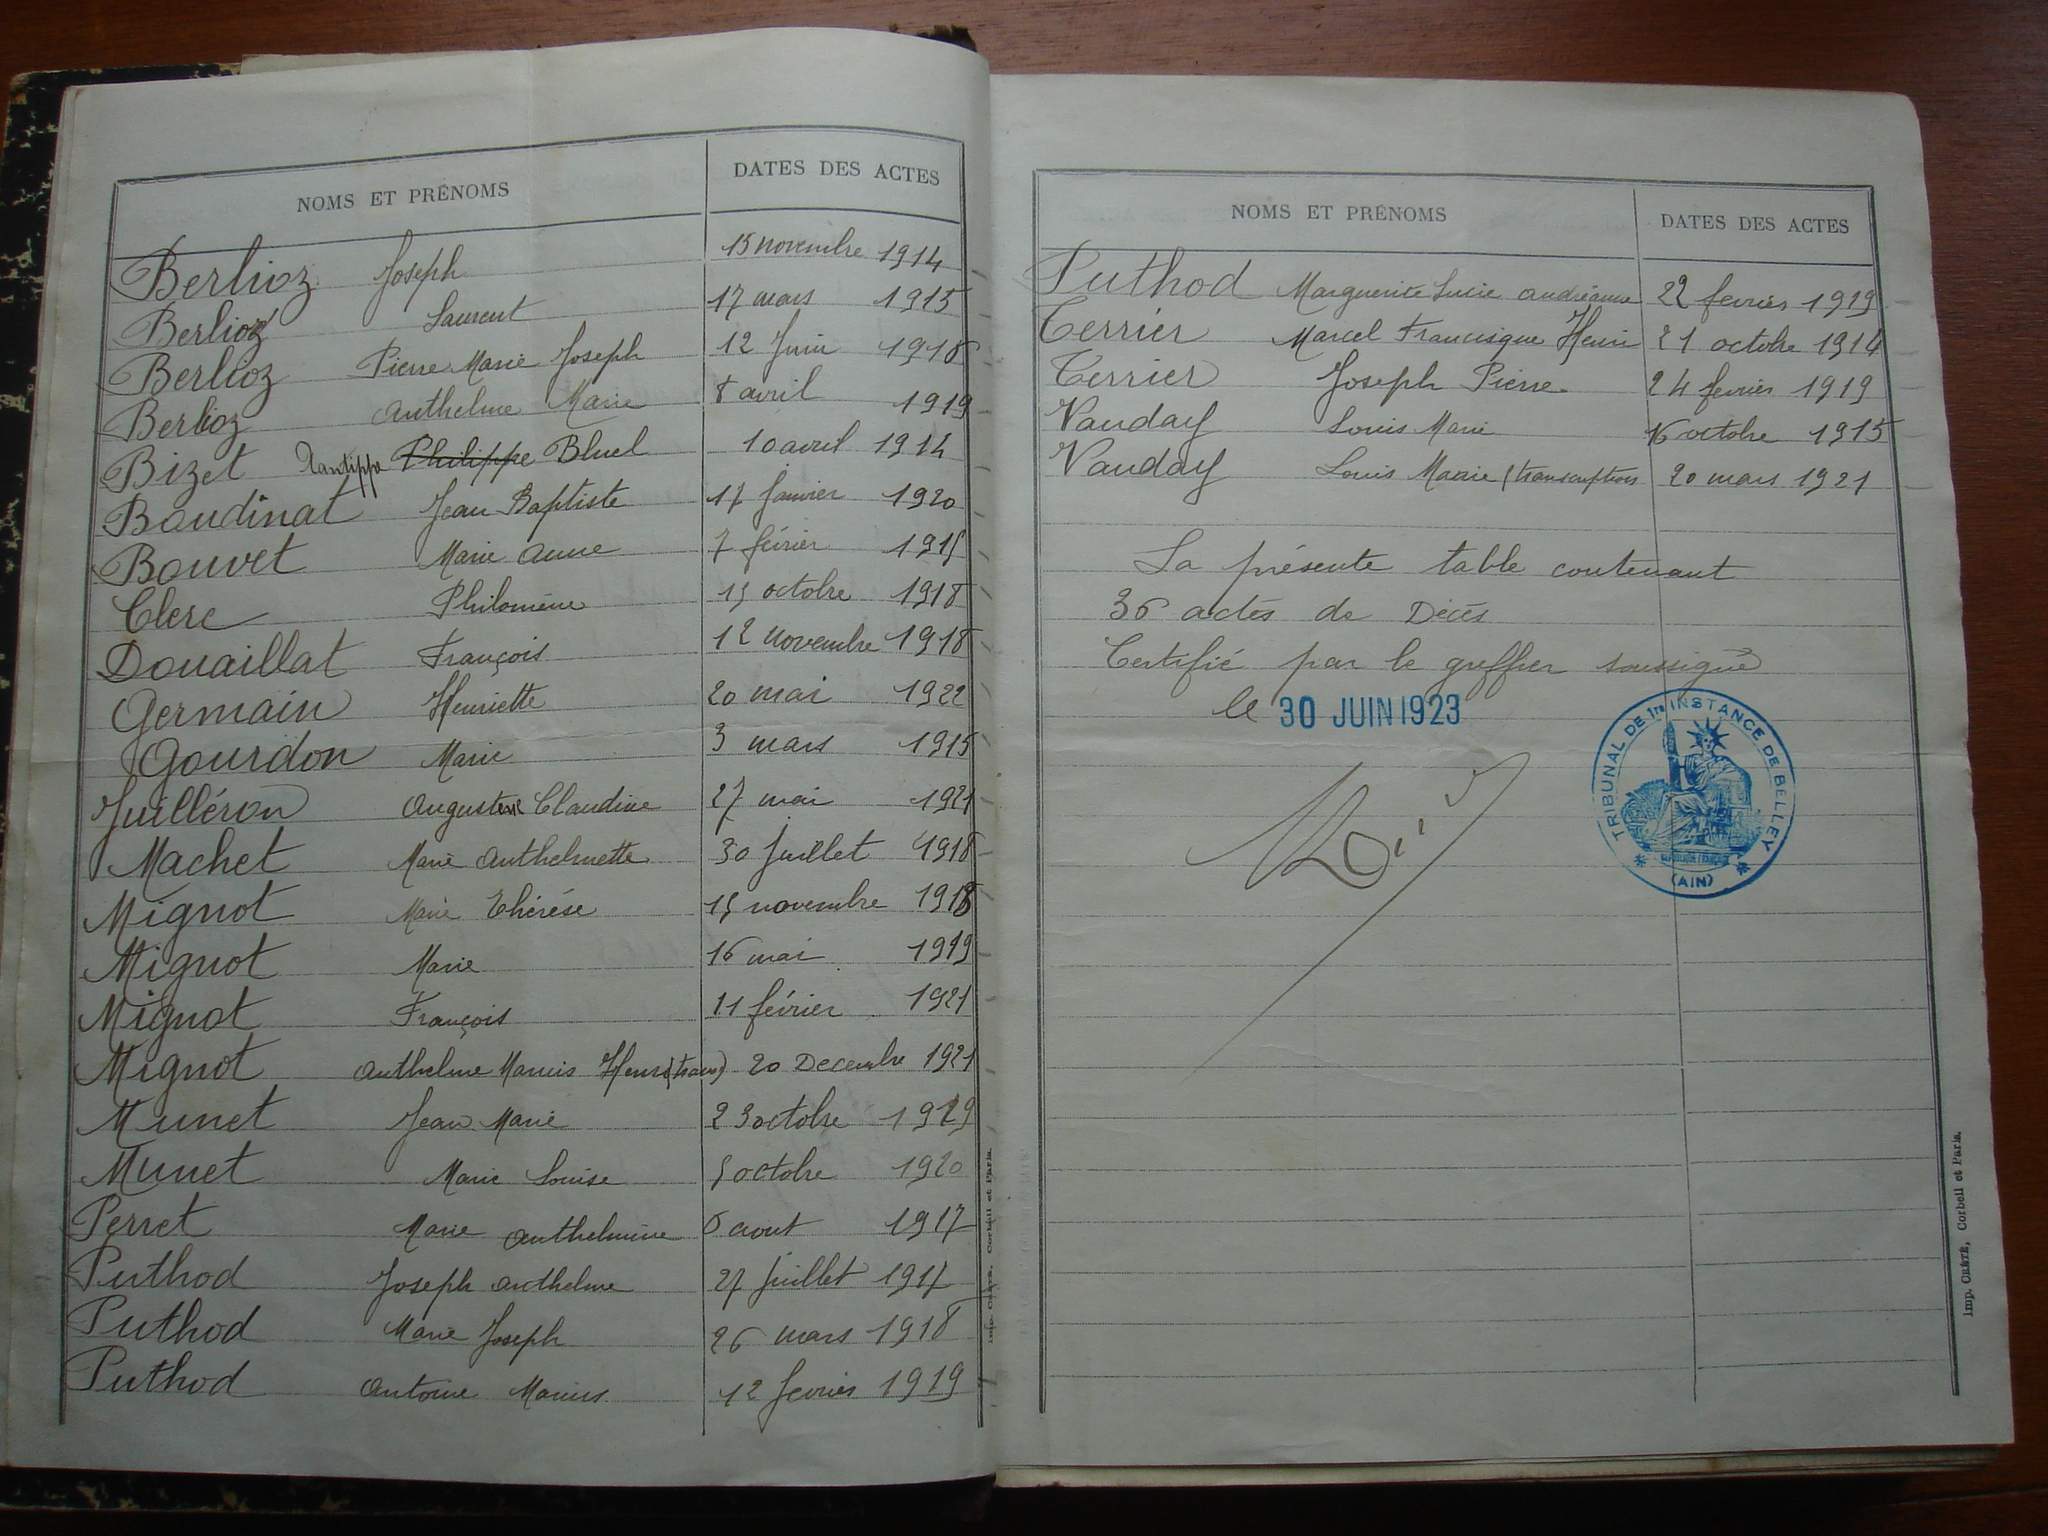 NOMS ET PRÉNOMS DATES DES ACTES
Berlioz Joseph 15 novembre 1914
Berlioz Laurent 17 mars 1915
Berlioz Pierre Marie Joseph 12 Juin 1918
Berlioz Anthelme Marie 8 avril 1919
Bizet Xantippe Philippe Bluel 10 avril 1914
Boudinat Jean Baptiste 17 Janvier 1920
Bouvet Marie Anne 7 février 1915
Clerc Philomène 15 octobre 1918
Douaillat François 12 novembre 1918
Germain Henriette 20 mai 1922
Gourdon Marie 3 mars 1915
Juilléron Augustine Claudine 27 mai 1921
Machet Marie Anthelmette 30 Juillet 1918
Mignot Marie Thérése 15 novembre 1918
Mignot Marie 16 mai 1919
Mignot François 11 février 1921
Mignot Anthelme Marius Henri (trans) 20 Decembre 1921
Munet Jean Marie 23 octobre 1919
Munet Marie Louise 5 octobre 1920
Perret Marie Anthelmine 6 aout 1917
Puthod Joseph Anthelme 27 Juillet 1917
Puthod Marie Joseph 26 mars 1918
Puthod Antoine Marius 12 fevrier 1919
Imp. CRÉTÉ, Corbeil et Paris.
NOMS ET PRÉNOMS DATES DES ACTES
Puthod Marguerite Lucie Andréanne 22 fevrier 1919
Terrier Marcel Francisque Henri 21 octobre 1914
Terrier Joseph Pierre 24 fevrier 1919
Vauday Louis Marie 16 octobre 1915
Vauday Louis Marie (transcription 20 mars 1921
La présente table contenant
36 actes de Décès
Certifié par le greffier soussigné
le 30 JUIN 1923
TRIBUNAL DE 1re INSTANCE DE BELLEY
RÉPUBLIQUE FRANÇAISE
(AIN)
Imp. CRÉTÉ, Corbeil et Paris.